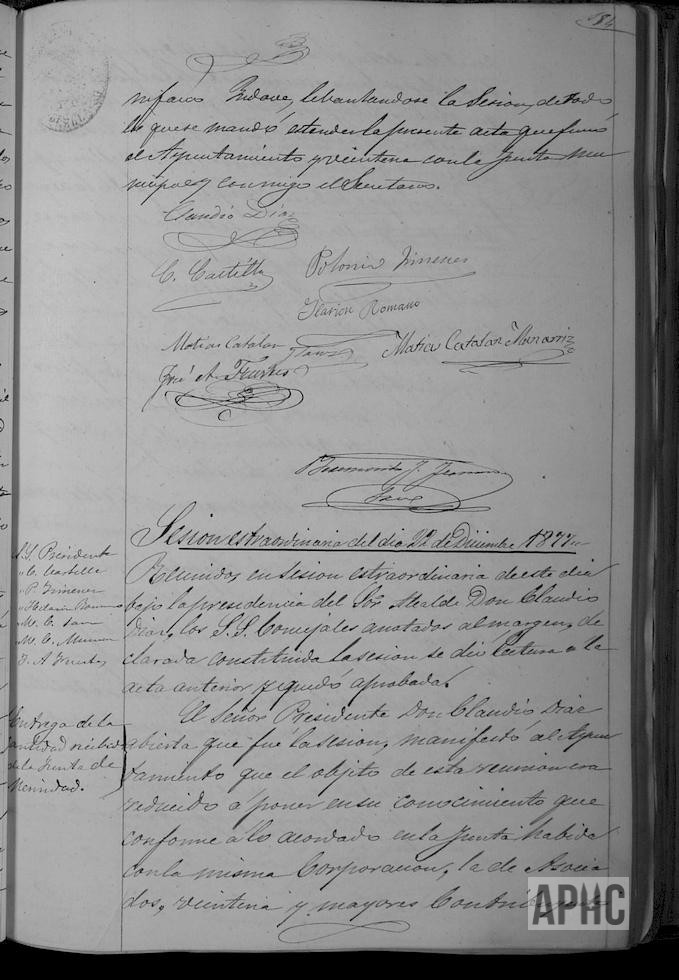 84
nifacio Zudave, lebantandose la Sesion, de todo
lo que se mandó estender la presente acta que firmó
el Ayuntamiento y veintena con la Junta Mu
nicipal y conmigo el Secretario.
Claudio Diaz
C. Castilla
Polonio Jimenez
Ilarion Romano
Matias Catalan
Matias Catalan Munarriz
José A. Fuertes
Sesion extraordinaria del dia 22 de Diciembre 1877
S. S. Presidente
" C. Castilla
" P. Jimenez
" Ilarion Romano
" M. C.
" M. C. Munarriz
J. A. Fuertes
Reunidos en sesion estraordinaria de este dia
bajo la presidencia del Sor. Alcalde Don Claudio
Diaz, los S. S. Concejales anotados al margen, de
clarada constituida la sesion se dió lectura a la
acta anterior y quedó aprobada.
Entrega de la
cantidad recibida
de la Junta de
Merindad.
El Señor Presidente Don Claudio Diaz
abierta que fué la sesion, manifestó al Ayun
tamiento que el objeto de esta reunion era
reducido á poner en su conocimiento que
conforme á lo acordado en la Junta habida
con la misma Corporacion, la de Asocia
dos, veintena y mayores Contribuyentes
APHC